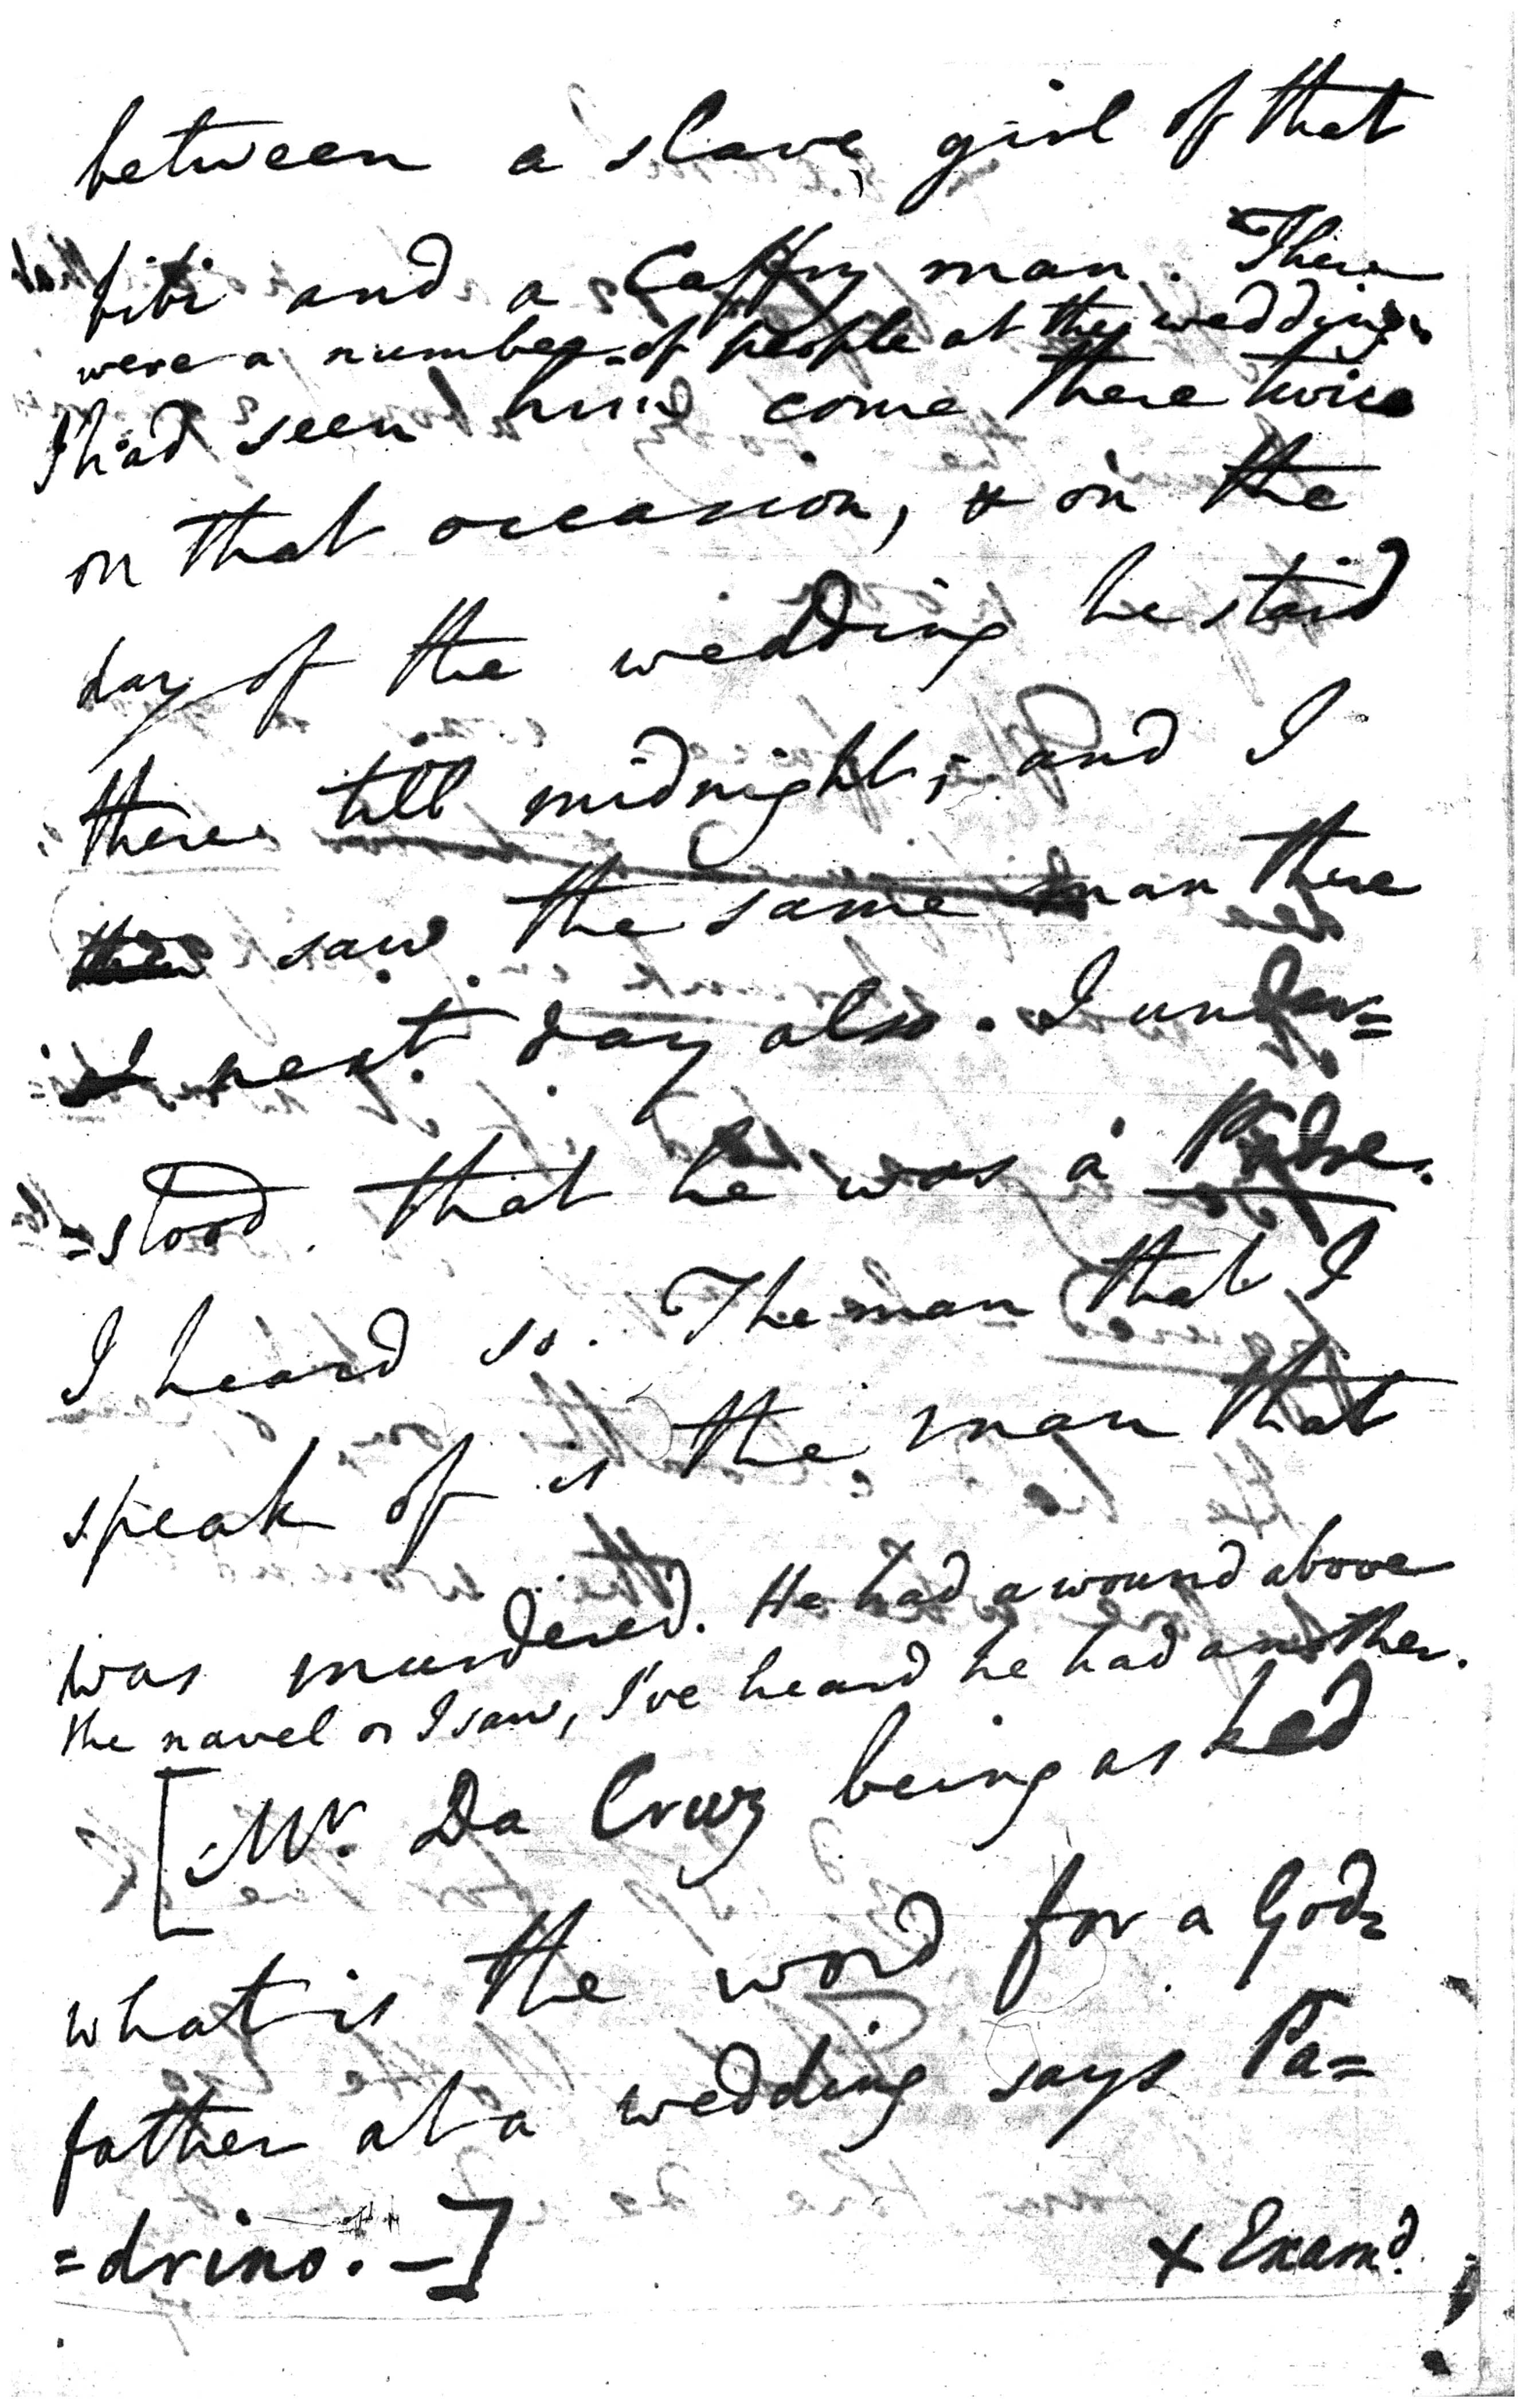 between a slave girl of that
bibi and a Caffry man. There
were a number of people at the wedding.
I had seen him come there twice
on that occasion, & on the
day of the wedding he staid
there till midnight; and I
saw the same man there
next day also. I under=
=stood that he was a Padre.
I heard so. The man that I
speak of is the man that
was murdered. He had a wound above
the navel as I saw, I've heard he had another.
[Mr. Da Cruz being asked
what is the word for a God=
father at a wedding says Pa=
=drino. —]
x Examd.